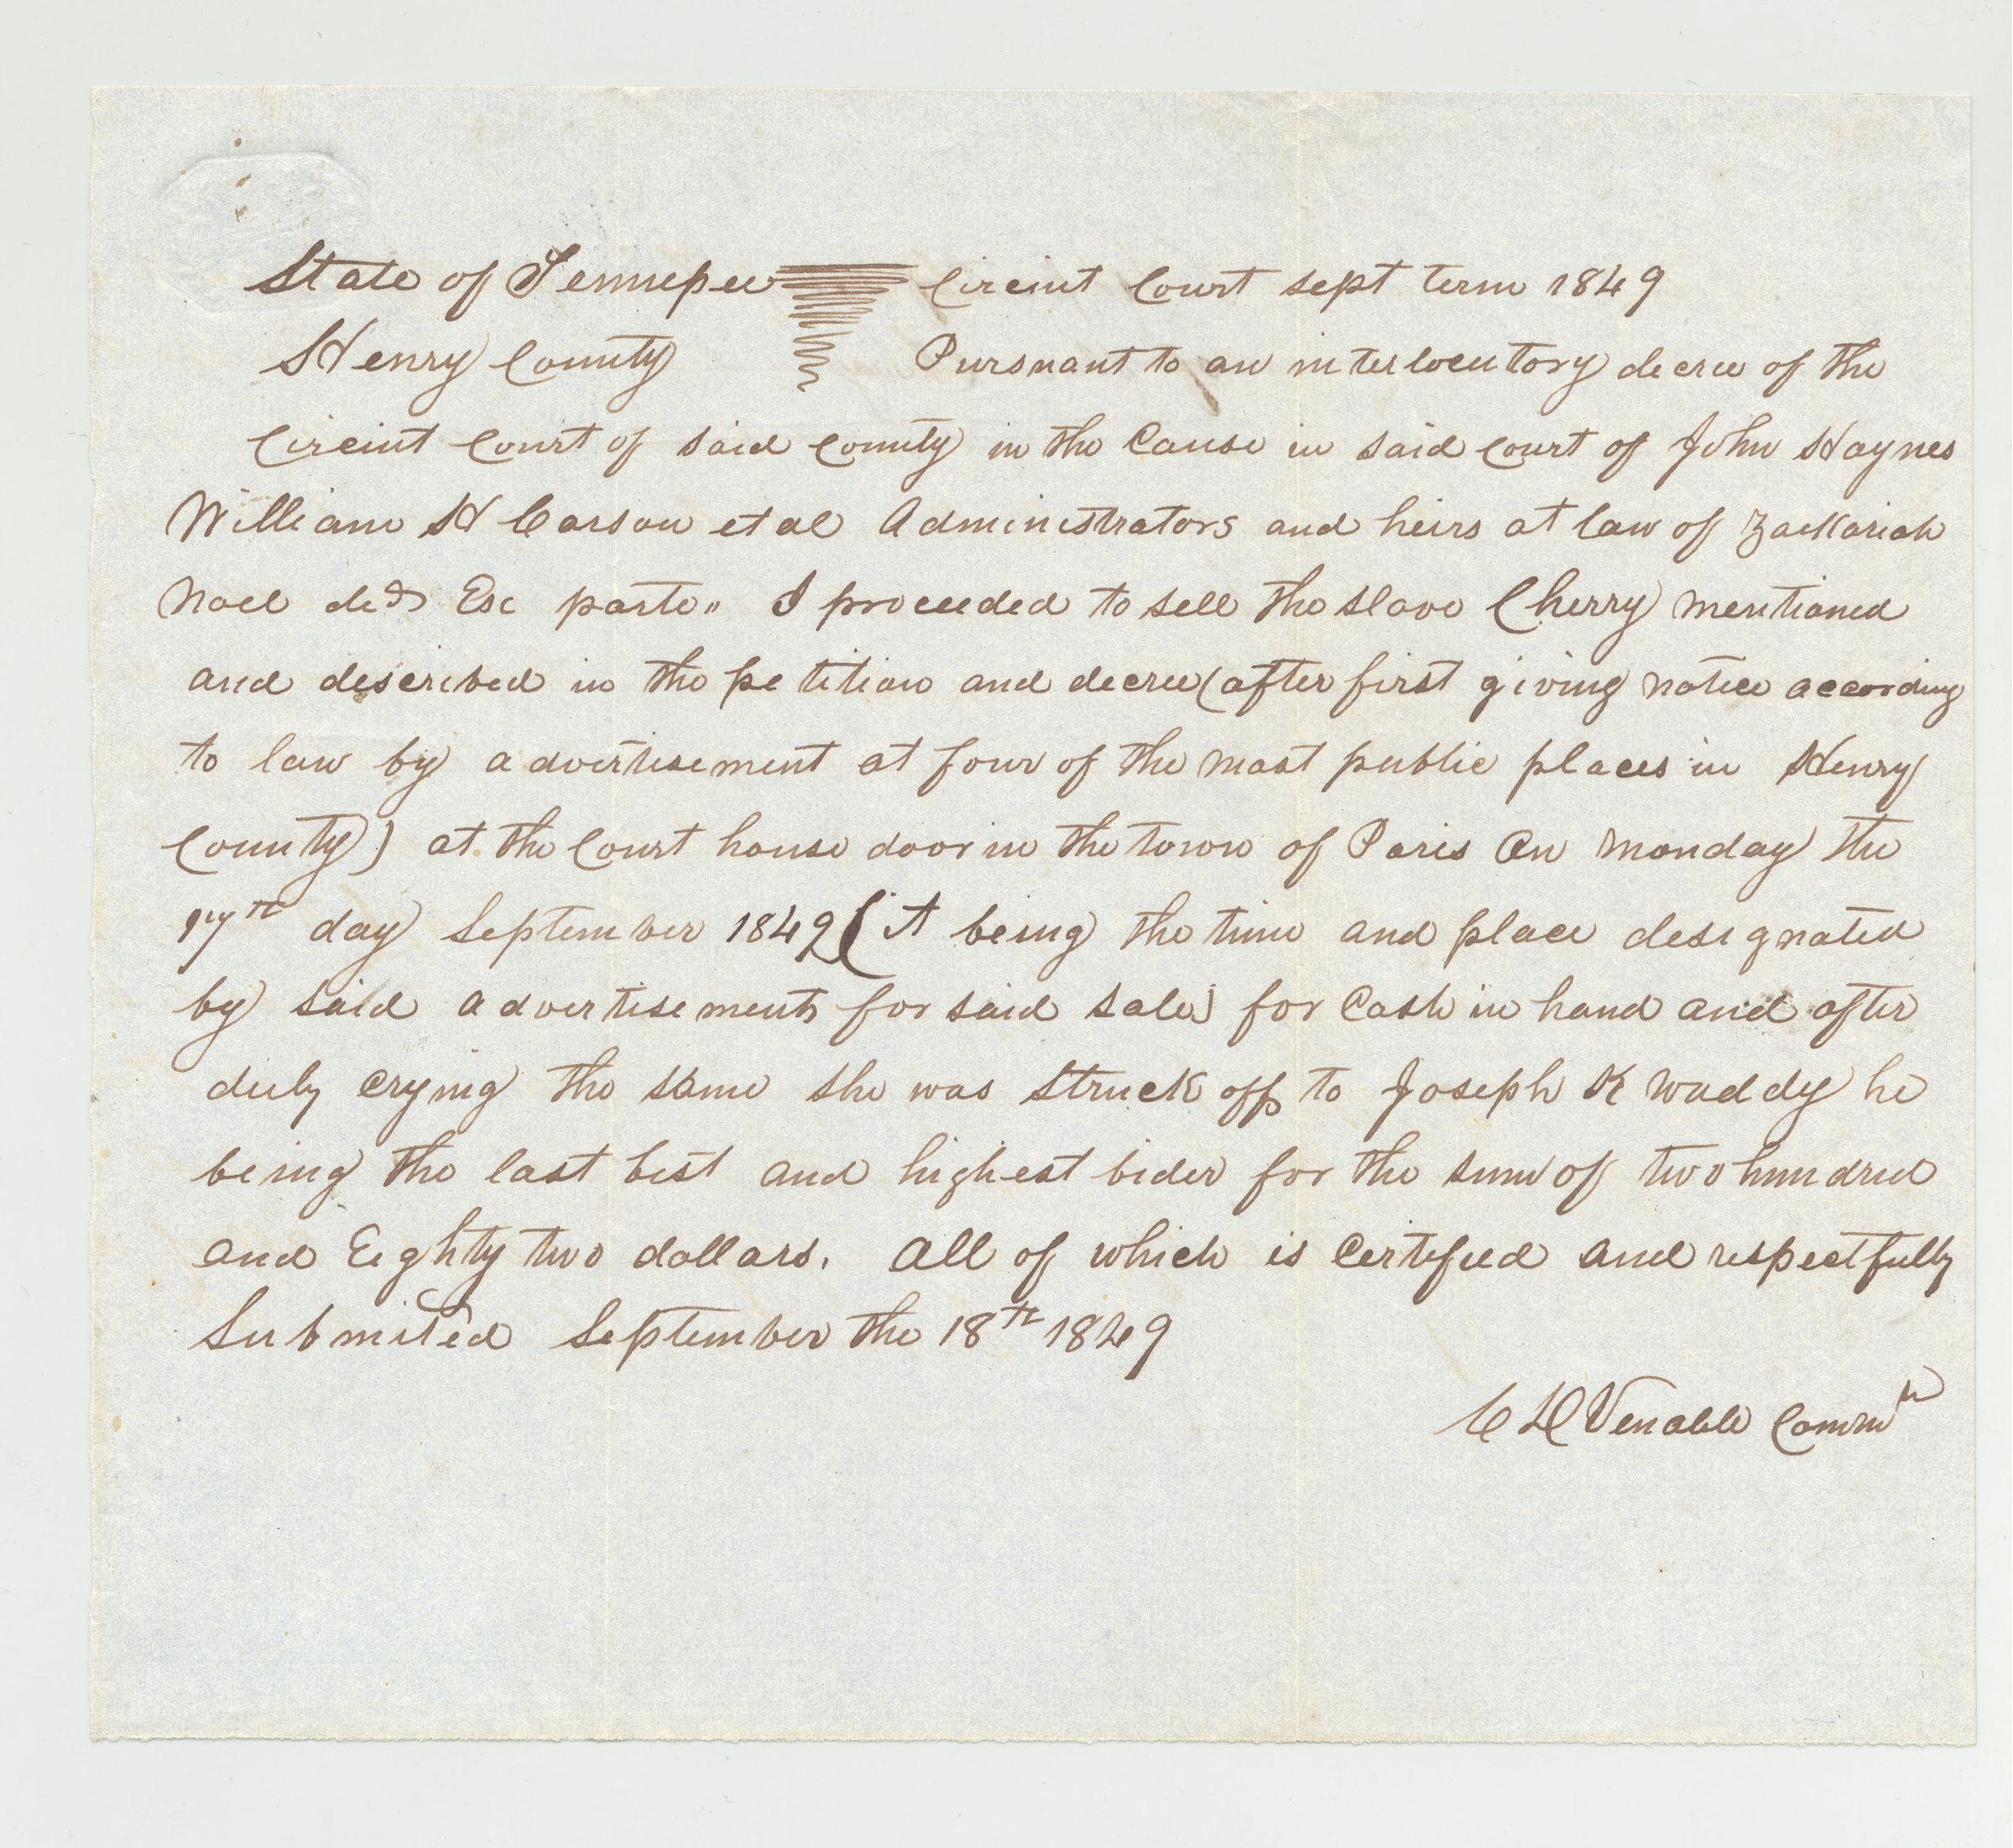 State of Tennessee Circuit Court sept term 1849
Henry County Pursuant to an interlocutory decree of the
Circuit Court of said County in the Cause in said Court of John Haynes
William H Carson et al Administrators and heirs at law of Zackariah
Noel decd Exc parte" I proceeded to sell the slave Cherry mentioned
and described in the petition and decree (after first giving notice according
to law by advertisement at four of the most public places in Henry
County) at the Court house door in the town of Paris On Monday the
17th day September 1849 (it being the time and place designated
by said advertisements for said sale) for Cash in hand and after
duly crying the same she was struck off to Joseph K Waddy he
being the last best and highest bider for the sum of two hundred
and Eighty two dollars. All of which is Certified and respectfully
Submited September the 18th 1849
Venable Commr